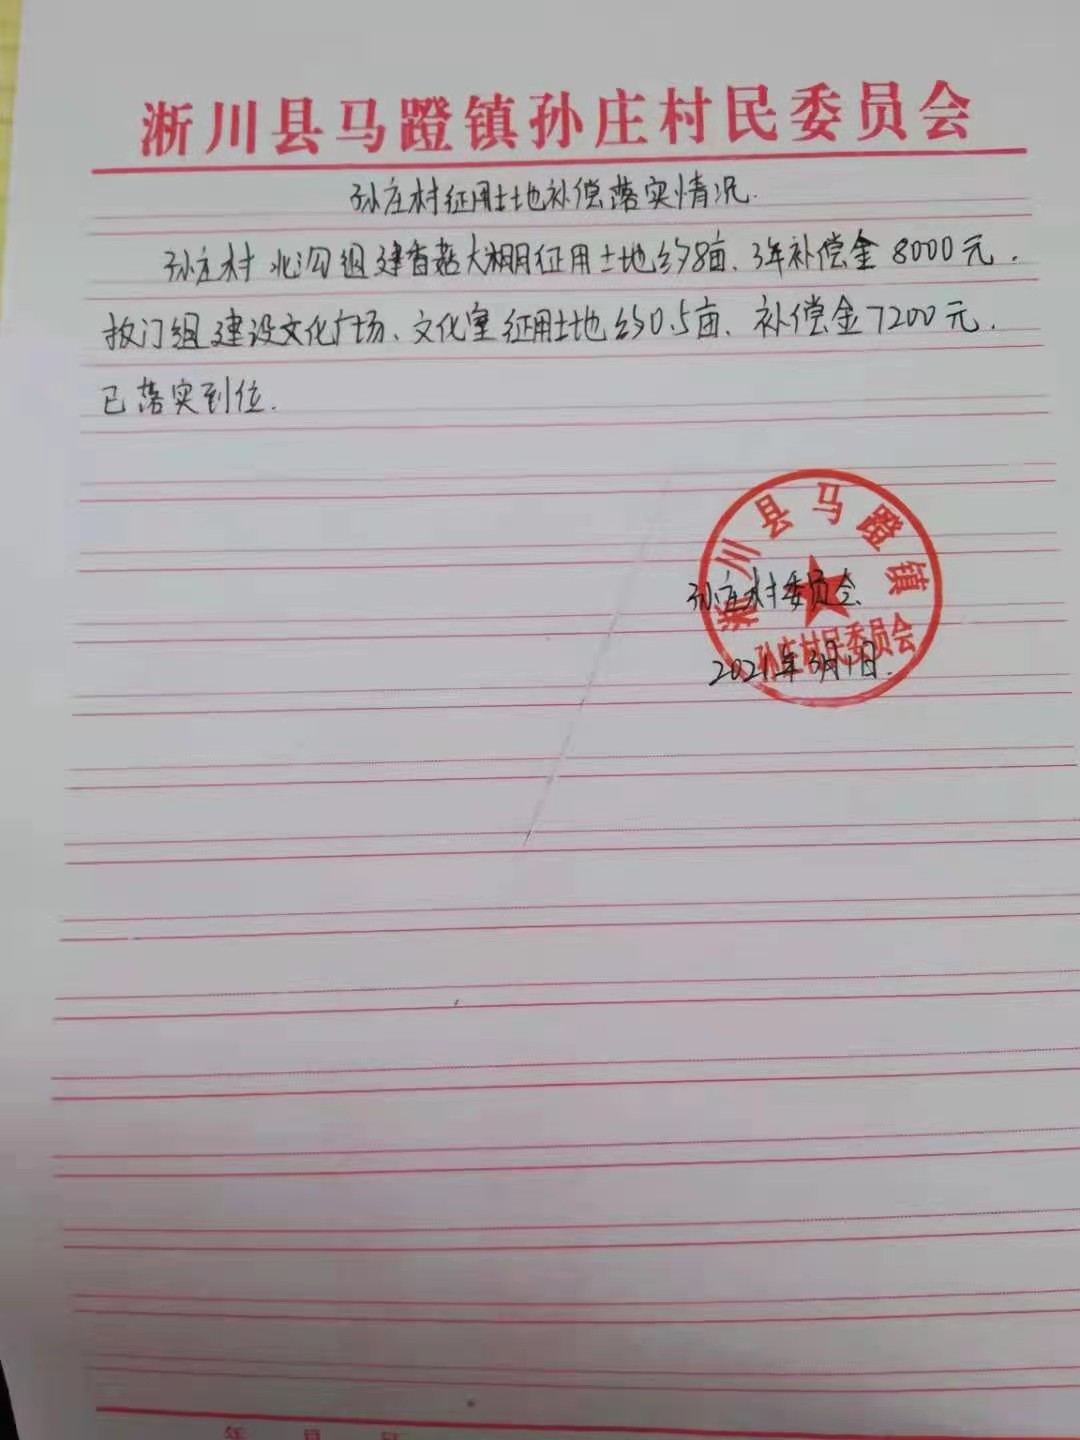 淅川县马蹬镇孙庄村民委员会
孙庄村征用土地补偿落实情况.
孙庄村北沟组建香菇大棚征用土地约8亩、3年补偿金8000元.
板门组建设文化广场、文化室征用土地约0.5亩、补偿金7200元.
已落实到位.
淅川县马蹬镇
孙庄村委员会
孙庄村民委员会
2021年3月1日.
年 月 日